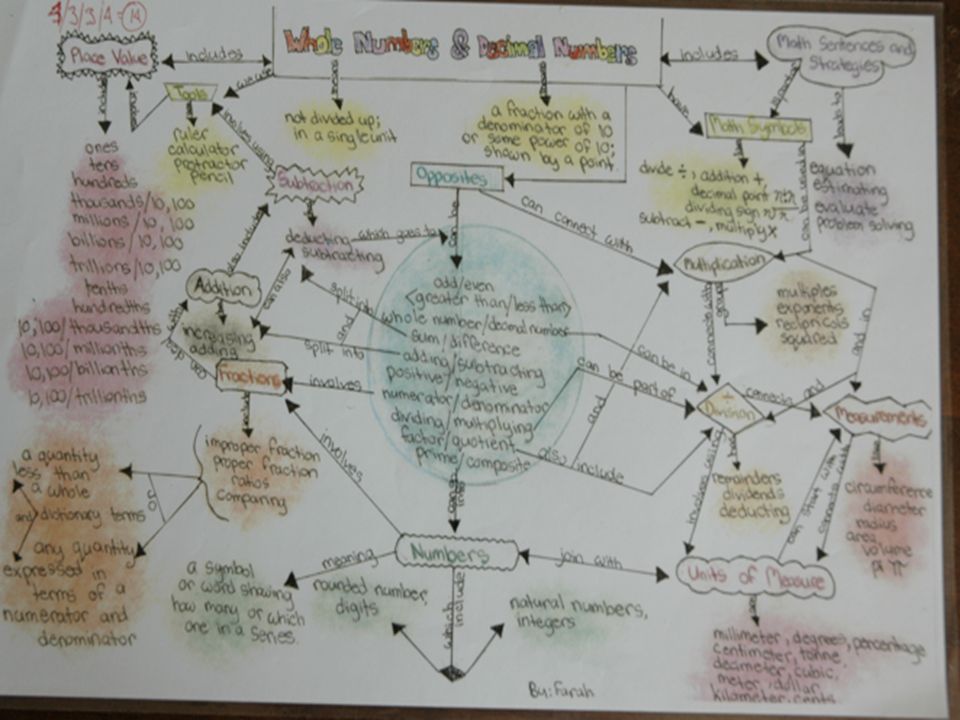 3/3/4 = 14
Whole Numbers & Decimal Numbers
Place Value
includes
includes
Math Sentences and
Strategies
Tools
we use
means
means
have
includes
not divided up;
in a single unit
a fraction with a
denominator of 10
or some power of 10;
shown by a point.
Math Symbols
ruler
calculator
protractor
pencil
involves using
Subtraction
Opposites
divide ÷, addition +,
decimal point
dividing sign
subtract -, multiply x
equation
estimating
evaluate
problem solving
ones
tens
hundreds
thousands/10,100
millions/10,100
billions/10,100
trillions/10,100
tenths
hundredths
10,100/thousandths
10,100/millionths
10,100/billionths
10,100/trillionths
can connect with
can be
deducting
subtracting
which goes to
also include
can also
Addition
increasing
adding
Multiplication
multiples
exponents
reciprocols
squared
add/even
greater than/less than
whole number/decimal number
sum/difference
adding/subtracting
positive/negative
numerator/denominator
dividing/multiplying
factor/quotient
prime/composite
split into
and
split into
involves
can be in
can be part of
and
also include
connects with
and in
Fractions
include
improper fraction
proper fraction
ratios
comparing
involves
÷
Division
connects
and
Measurements
remainders
dividends
deducting
circumference
diameter
radius
area
volume
pi π
a quantity
less than
a whole
and
dictionary terms
any quantity
expressed in
terms of a
numerator and
denominator
involves using
can start with
connects with
Numbers
meaning
join with
Units of Measure
a symbol
or word showing
how many or which
one in a series.
rounded number,
digits
which
include
natural numbers,
integers
millimeter, degrees, percentage
centimeter, tonne,
decimeter, cubic,
meter, dollar,
kilometer, cents
By: Farah